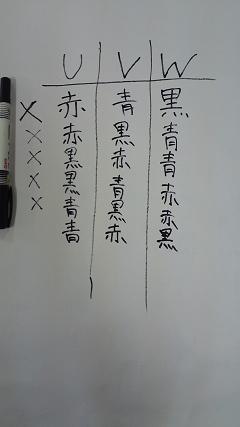 U V W
× 赤 青 黒
× 赤 黒 青
× 黒 赤 青
× 黒 青 赤
× 青 黒 赤
青 赤 黒